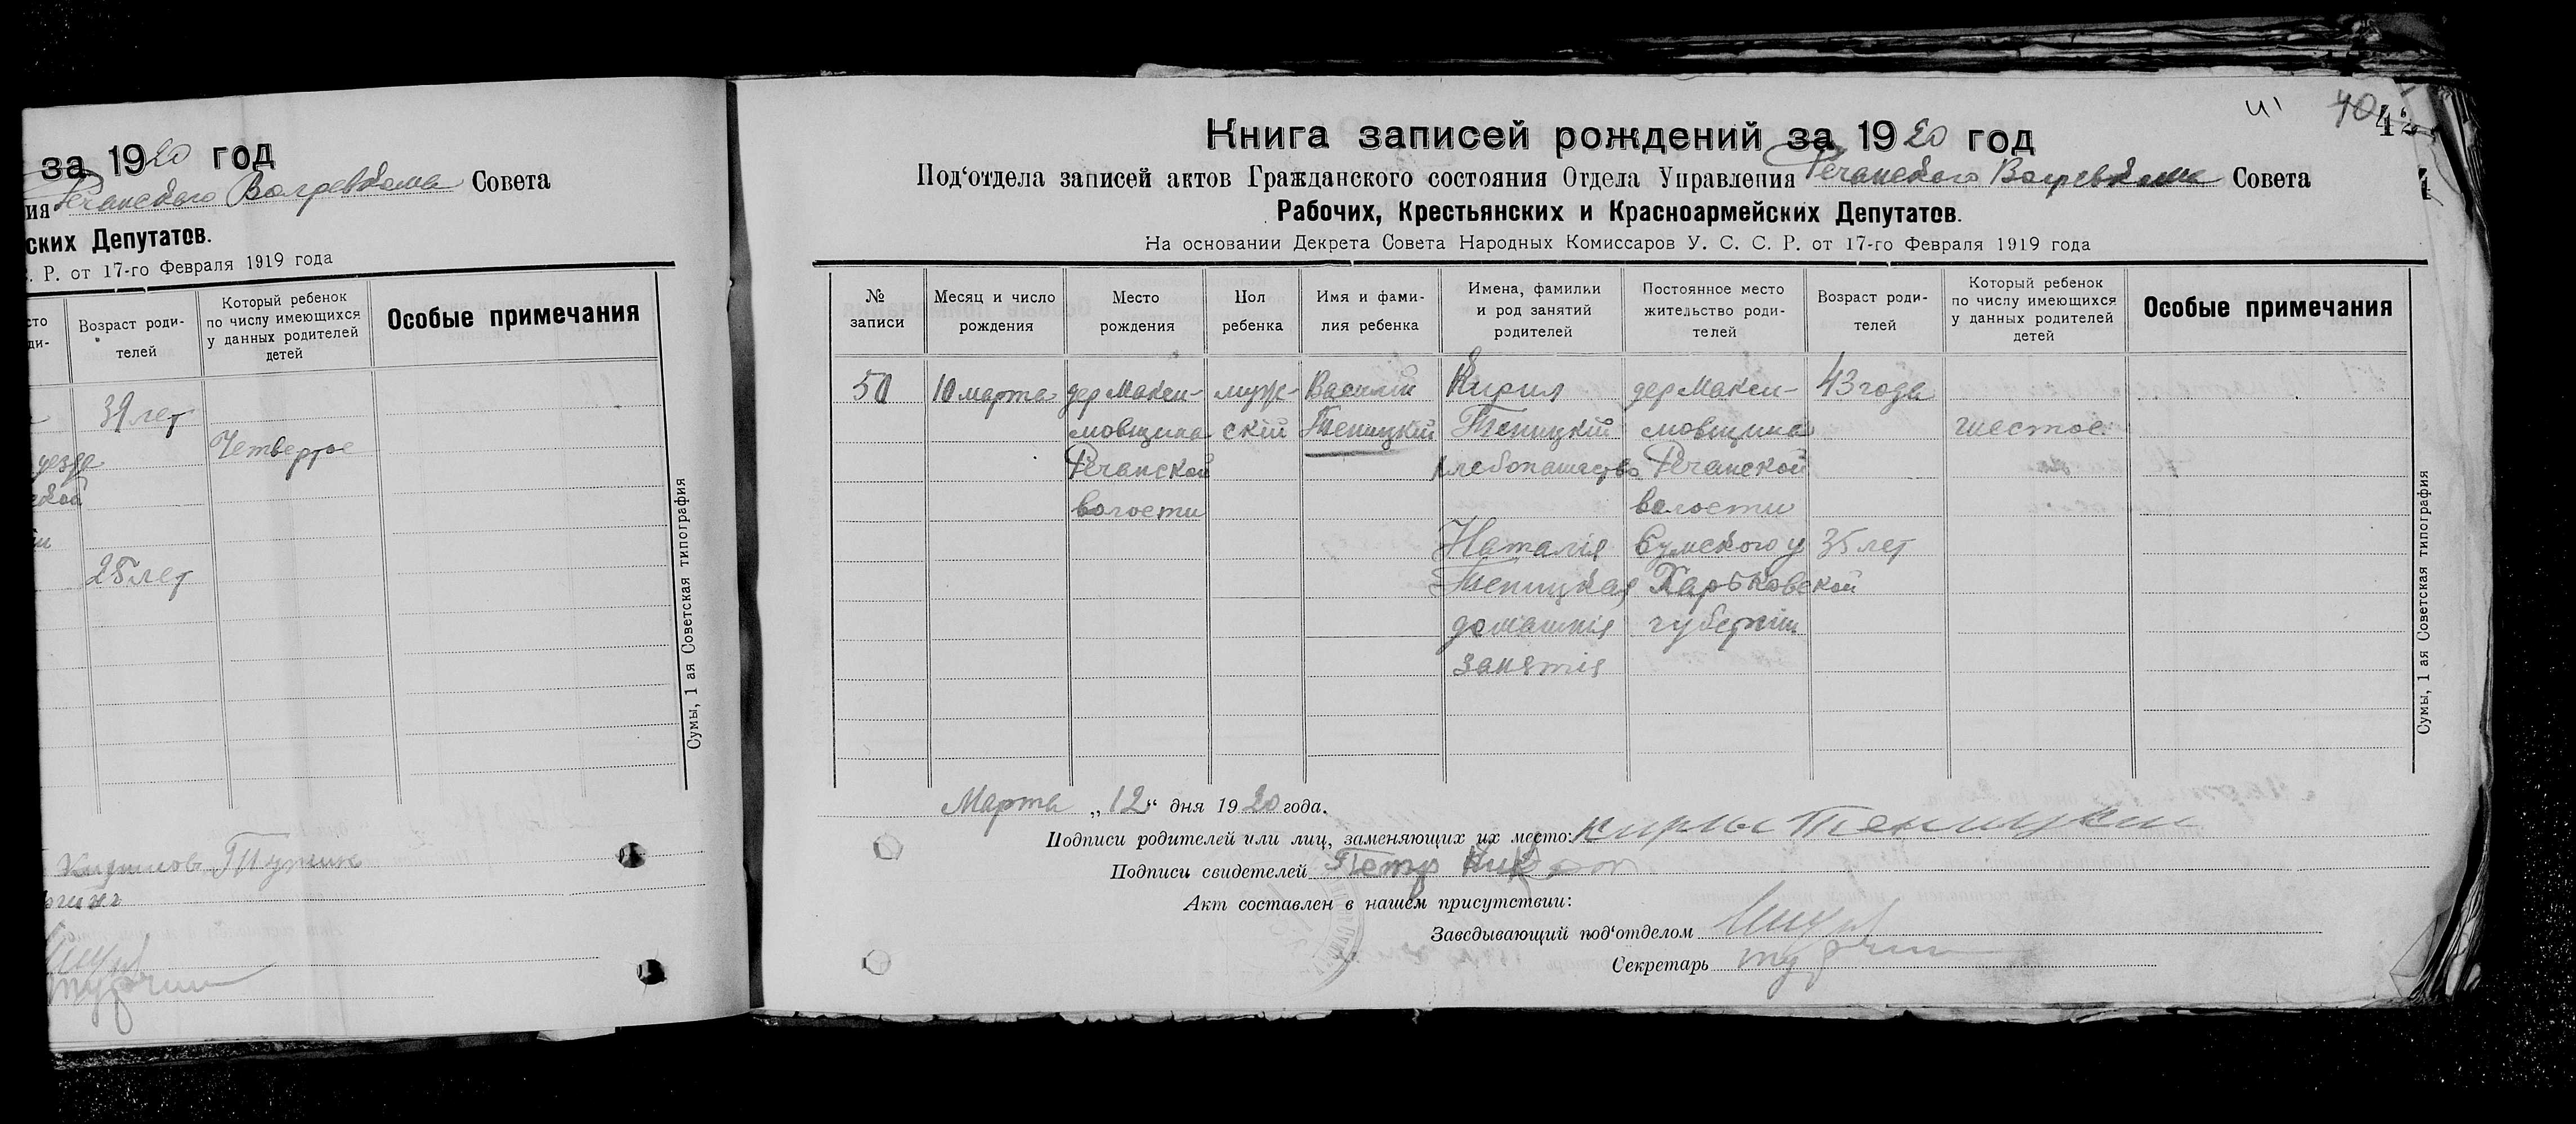 за 1920 год
ия Речанского Волревкома Совета
ских Депутатов.
. Р. от 17-го Февраля 1919 года
Возраст роди-
телей
Который ребенок
по числу имеющихся
у данных родителей
детей
Особые примечания
39 лет
Четвертое
уезда
25 лет
Сумы, 1 ая Советская типография
40
42
Книга записей рождений за 1920 год
Под‘отдела записей актов Гражданского состояния Отдела Управления Речанского Волревкома Совета
Рабочих, Крестьянских и Красноармейских Депутатов.
На основании Декрета Совета Народных Комиссаров У. С. С. Р. от 17-го Февраля 1919 года
№
записи
Месяц и число
рождения
Место
рождения
Пол
ребенка
Имя и фами-
лия ребенка
Имена, фамилии
и род занятий
родителей
Постоянное место
жительство роди-
телей
Возраст роди-
телей
Который ребенок
по числу имеющихся
у данных родителей
детей
Особые примечания
50 10 марта дер Макси- муж- Василий Кирил дер Макси- 43 года
мовщина скій Тепицкій Тепицкій мовщина шестое
Речанской хлебопашество Речанской
волости волости
Наталія Сумского у 35 лет
Тепицкая Харьковской
домашнія губерніи
занятія
Сумы, 1 ая Советская типография
Марта „12“ дня 1920 года.
Подписи родителей или лиц, заменяющих их место:
Подписи свидетелей Петр
Акт составлен в нашем присутствии:
Заведывающий под‘отделом
Секретарь